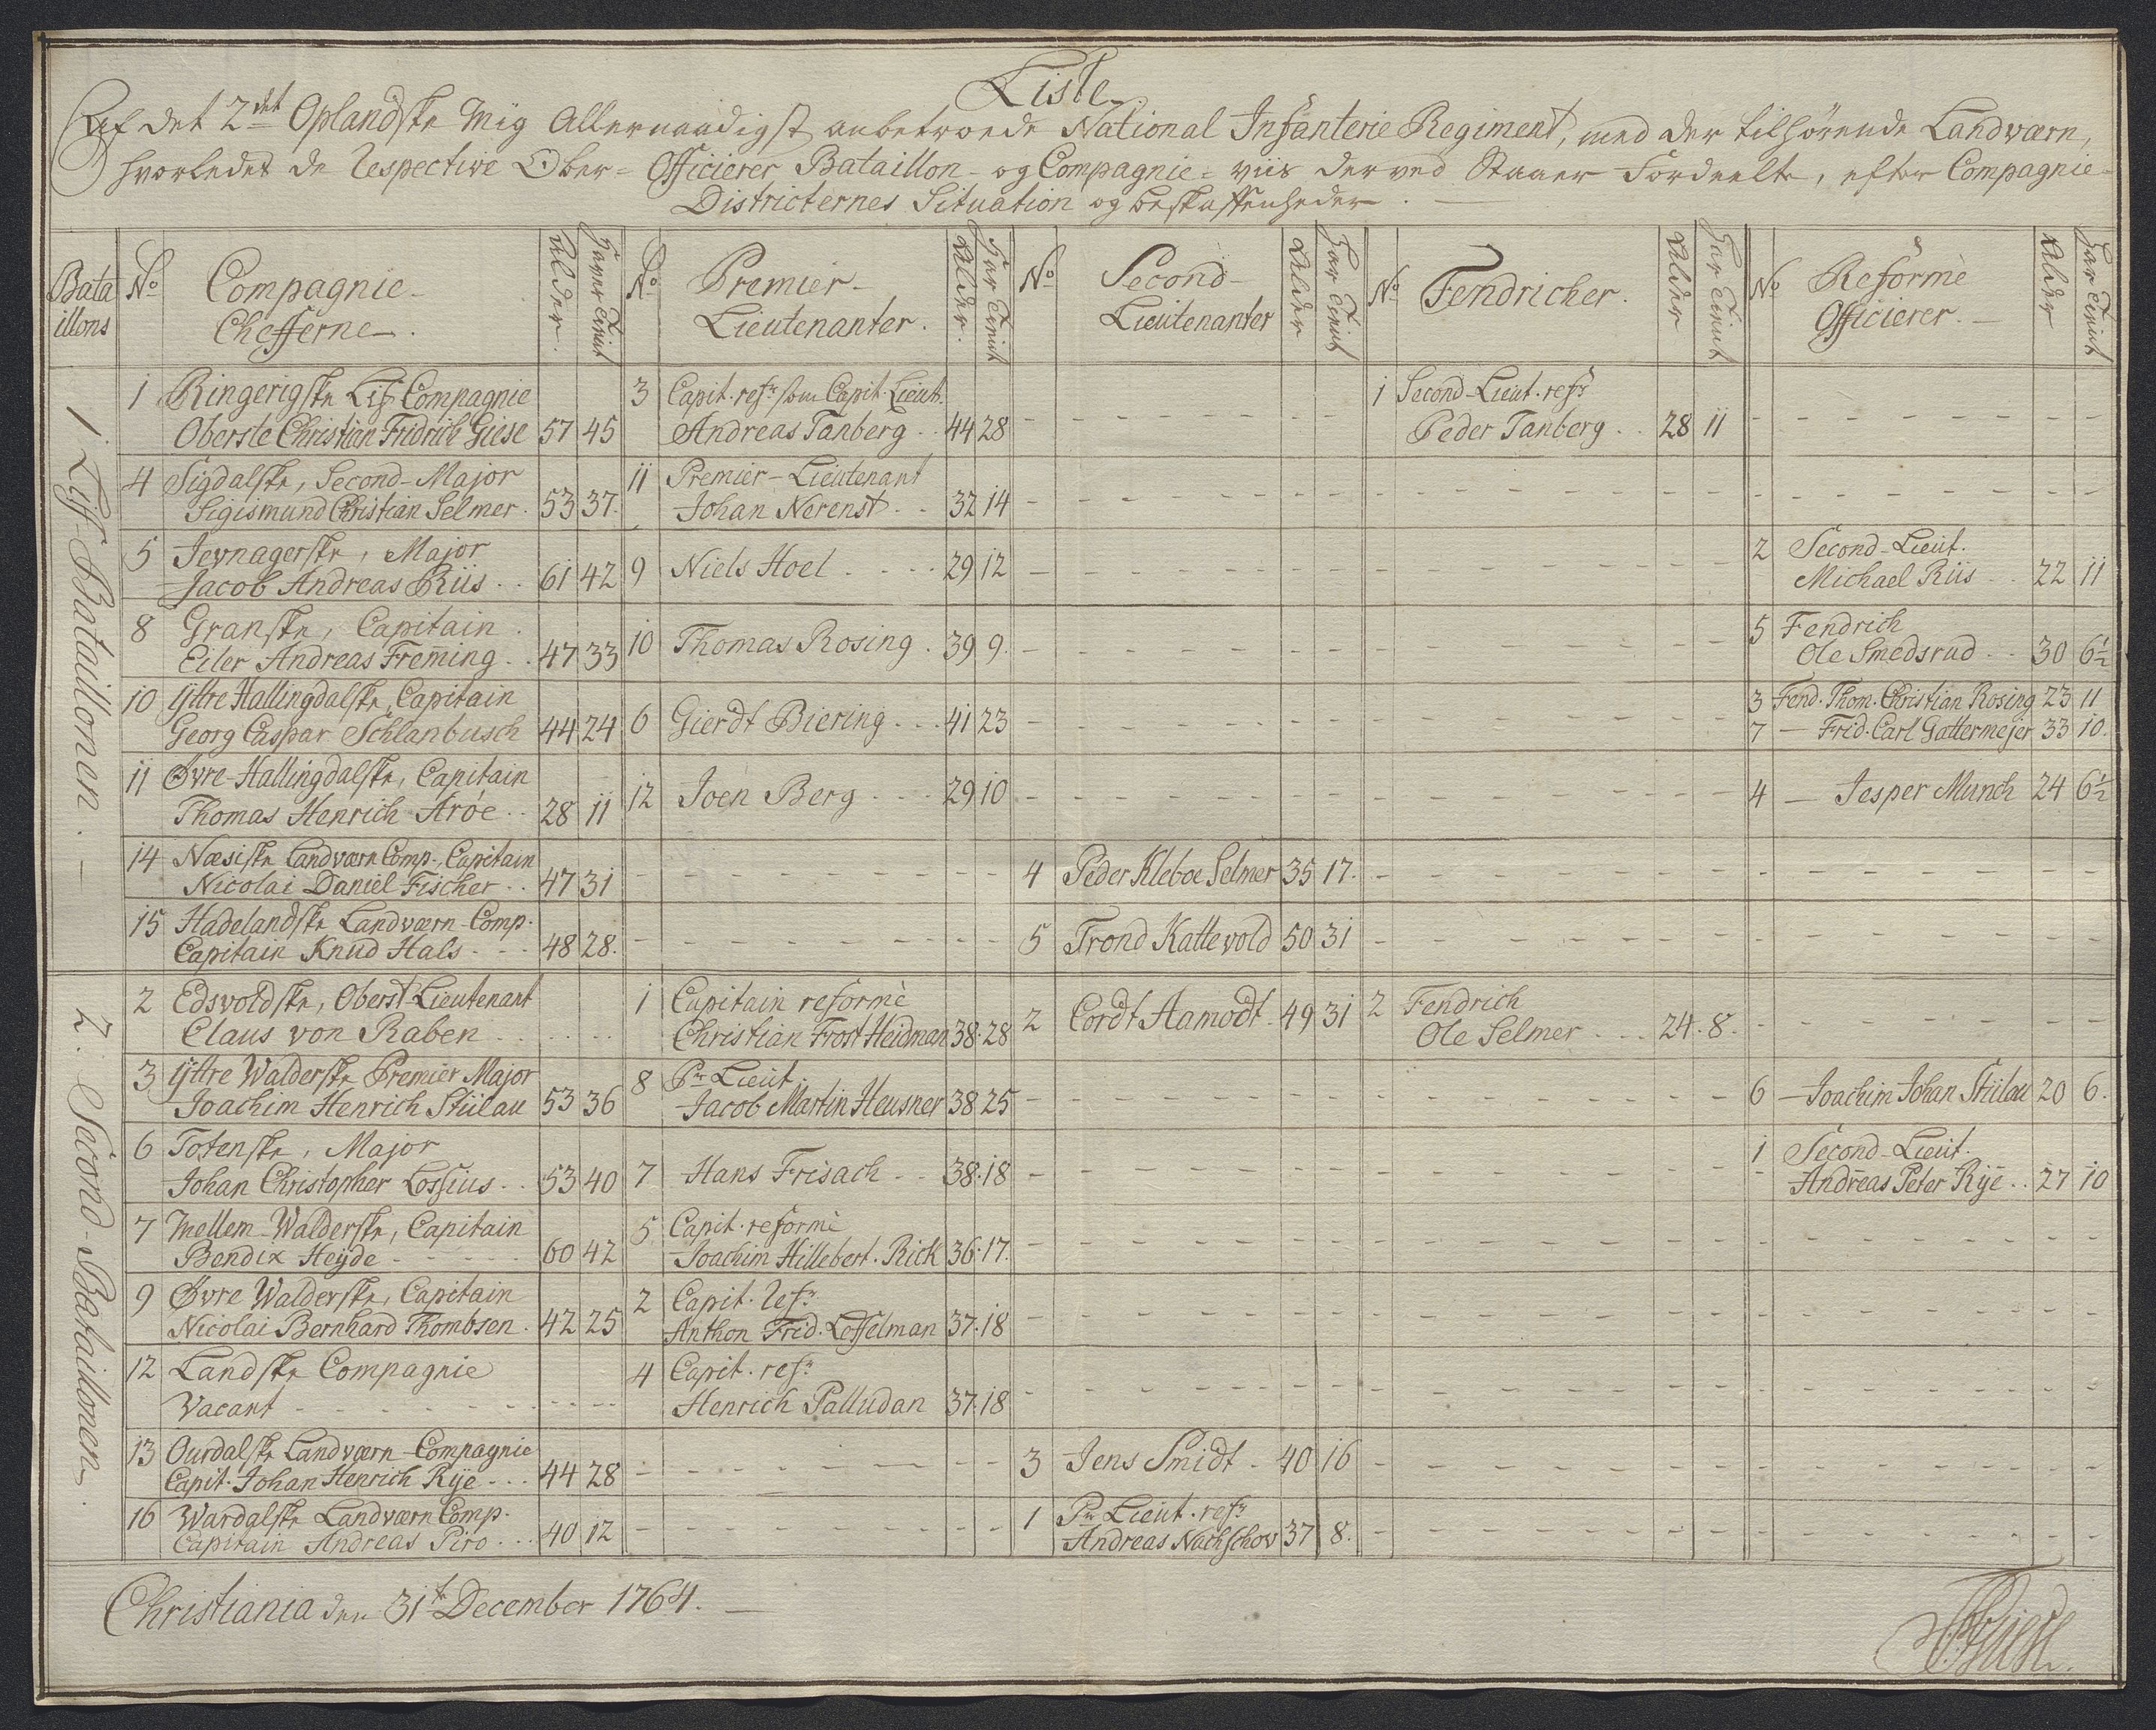 Liste
Af det 2det Oplandske Mig Allernaadigst anbetroede National Infanterie Regiment, med der tilhørende Landværn,
hvorledes de Respective Ober-Officierer Bataillon- og Compagnie-viis derved Staaer Fordeelte, efter Compagnie-
Districternes Situation og beskaffenheder.
Bata
illons
No
Compagnie
Chefferne.
Alder.
Haver tient
No
Premier-
Lieutenanter.
Alder.
Har tient
No
Second-
Lieutenanter
Alder
Har tient
No
Fendricher.
Alder
Har tient
No
Reformè
Officierer.
Alder
Har tient
1 Liff-Bataillonen.
1 Ringerigske Lif Compagnie 3 Capit. refr som Capit. Lieut. 1 Second-Lieut. refr
Oberste Christian Fridrich Giese 57 45 Andreas Tanberg 44 28 Peder Tanberg 28 11
4 Sigdalske, Second-Major 11 Premier-Lieutenant
Sigismund Christian Selmer. 53 37. Johan Nerenst 32 14
5 Jevnagerske, Major 2 Second-Lieut.
Jacob Andreas Riis 61 42 9 Niels Hoel 29 12 Michael Riis 22 11
8 Granske, Capitain 5 Fendrich
Eiler Andreas Freming 47 33 10 Thomas Rosing. 39 9. Ole Smedsrud 30 6½
10 Yttre Hallingdalske, Capitain 3 Fend. Thom. Christian Rosing 23 11
Georg Caspar Schlanbusch 44 24 6 Gierdt Biering 41 23 7 — Frid. Carl Gottermejer 33 10.
11 Øvre-Hallingdalske, Capitain
Thomas Henrich Arøe 28 11 12 Joen Berg 29 10 4 — Jesper Munch 24 6½
14 Næsiske Landværn Comp., Capitain
Nicolai Daniel Fischer 47 31 4 Peder Kleboe Selmer 35 17.
15 Hadelandske Landværn-Comp.
Capitain Knud Hals 48 28. 5 Trond Kattevold 50 31
2. Second-Bataillonen.
2 Edsvoldske, Oberst-Lieutenant 1 Capitain reformè 2 Fendrich
Claus von Raben Christian Frost Heidman 38. 28 2 Cordt Aamodt 49 31 Ole Selmer 24. 8.
3 Yttre Walderske Premier Major 8 Pr Lieut.
Joachim Henrich Stiilau 53 36 Jacob Martin Heusner 38 25 6 — Joachim Johan Stiilau 20 6.
6 Totenske, Major 1 Second-Lieut.
Johan Christopher Lossius 53 40 7 Hans Frisach 38. 18 Andreas Peter Rÿe 27 10
7 Mellem-Walderske, Capitain 5 Capit. reformè
Bendix Heyde 60 42 Joachim Hillebert. Rick 36. 17.
9 Øvre Walderske, Capitain 2 Capit. Refr
Nicolai Bernhard Thombsen. 42 25 Anthon Frid. Loffelman 37. 18
12 Landske Compagnie 4 Capit. refr
Vacant Henrich Palludan 37. 18
13 Ourdalske Landværn-Compagnie
Capit. Johan Henrich Rÿe 44 28 3 Jens Smidt 40 16
16 Wardalske Landværn Comp. 1 Pr Lieut. refr
Capitain Andreas Piro 40 12 Andreas Nachschow 37 8.
Christiania den 31te December 1764.
Giese.